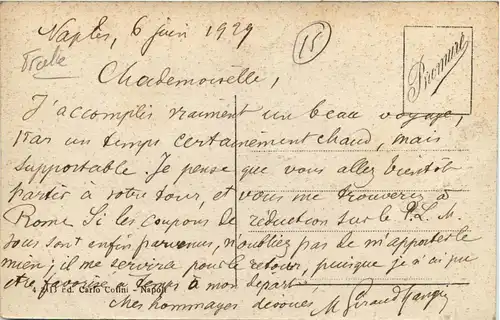 Naples, 6 juin 1929
15
Bromure
Mademoiselle,
J'accomplis vraiment un beau voyage,
par un temps certainement chaud, mais
supportable Je pense que vous allez bientôt
partir à votre tour, et vous me trouverez à
Rome Si les coupons de réduction sur le P. L. M.
vous sont enfin parvenus, n'oubliez pas de m'apporter le
mien; il me servira pour le retour, puisque je n'ai pu
être favorisé à temps à mon départ
ed. Carlo Cofini - Napoli
Mes hommages dévoués M Giraud Mangin